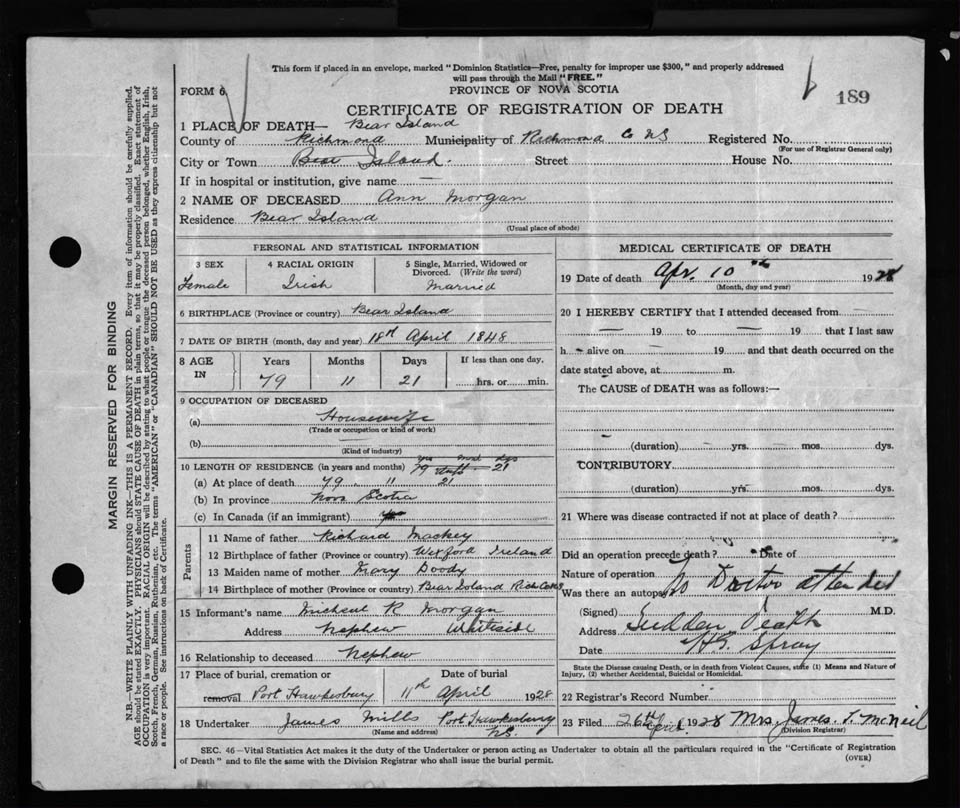 This form if placed in an envelope, marked "Dominion Statistics—Free, penalty for improper use $300," and properly addressed
will pass through the Mail "FREE."
FORM 6
PROVINCE OF NOVA SCOTIA
189
CERTIFICATE OF REGISTRATION OF DEATH
1 PLACE OF DEATH— Bear Island
County of Richmond Municipality of Richmond Co NS Registered No.
(For use of Registrar General only)
City or Town Bear Island. Street House No.
If in hospital or institution, give name —
2 NAME OF DECEASED Ann Morgan
Residence Bear Island
(Usual place of abode)
PERSONAL AND STATISTICAL INFORMATION
3 SEX 4 RACIAL ORIGIN 5 Single, Married, Widowed or
Divorced. (Write the word)
Female Irish Married
6 BIRTHPLACE (Province or country) Bear Island
7 DATE OF BIRTH (month, day and year) 18th April 1848
8 AGE
IN
Years Months Days If less than one day,
79 11 21 hrs. or min.
9 OCCUPATION OF DECEASED
(a) Housewife
(Trade or occupation or kind of work)
(b) —
(Kind of industry)
10 LENGTH OF RESIDENCE (in years and months) 79 21
(a) At place of death 79 11 21
(b) In province Nova Scotia
(c) In Canada (if an immigrant)
Parents
11 Name of father Richard Mackey
12 Birthplace of father (Province or country) Wexford Ireland
13 Maiden name of mother Mary Doody
14 Birthplace of mother (Province or country) Bear Island Rich Co NS
15 Informant's name Micheal R Morgan
Address Nephew Whiteside
16 Relationship to deceased Nephew
17 Place of burial, cremation or Date of burial
removal Port Hawkesbury 11th April 1928
18 Undertaker James Mills Port Hawkesbury
(Name and address) NS.
MEDICAL CERTIFICATE OF DEATH
19 Date of death Apr. 10th 1928
(Month, day and year)
20 I HEREBY CERTIFY that I attended deceased from —
— 19 to — 19 that I last saw
h — alive on — 19 and that death occurred on the
date stated above, at m.
The CAUSE of DEATH was as follows:—
(duration) yrs. mos. dys.
CONTRIBUTORY
(duration) yrs. mos. dys.
21 Where was disease contracted if not at place of death?
Did an operation precede death? Date of
Nature of operation
Was there an autopsy No Doctor attended
(Signed) M.D.
Address Sudden Death
Date H.G. Spray
State the Disease causing Death, or in death from Violent Causes, state (1) Means and Nature of
Injury, (2) whether Accidental, Suicidal or Homicidal.
22 Registrar's Record Number
23 Filed 26th April 1928 Mrs James T. McNeil
(Division Registrar)
SEC. 46—Vital Statistics Act makes it the duty of the Undertaker or person acting as Undertaker to obtain all the particulars required in the "Certificate of Registration
of Death" and to file the same with the Division Registrar who shall issue the burial permit.
(OVER)
MARGIN RESERVED FOR BINDING
N.B.—WRITE PLAINLY WITH UNFADING INK—THIS IS A PERMANENT RECORD. Every item of information should be carefully supplied.
AGE should be stated EXACTLY. PHYSICIANS should STATE CAUSE OF DEATH in plain terms, so that it may be properly classified. Exact statement of
OCCUPATION is very important. RACIAL ORIGIN will be described by stating to what people or tongue the deceased person belonged, whether English, Irish,
Scotch, French, German, Russian, Ruthenian, etc. The terms "AMERICAN" or "CANADIAN" SHOULD NOT BE USED as they express citizenship but not
a race or people. See instructions on back of Certificate.